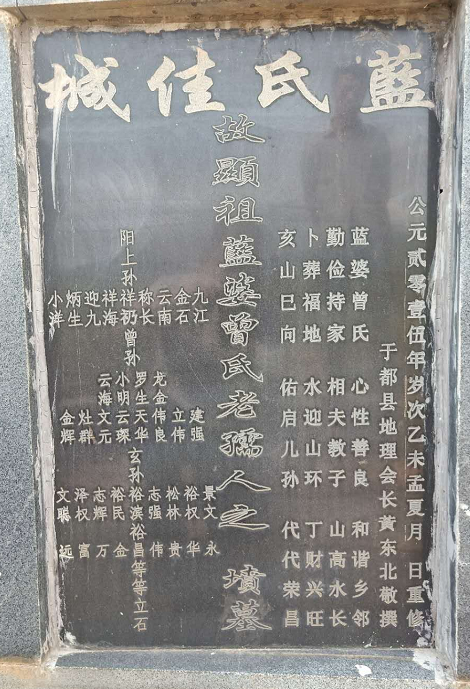 藍氏佳城
公元贰零壹伍年岁次乙未孟夏月 日重修
于都县地理会长黄东北敬撰
蓝婆曾氏 心性善良 和谐乡邻
勤俭持家 相夫教子 山高水长
卜葬福地 水迎山环 丁财兴旺
亥山巳向 佑启儿孙 代代荣昌
故顯祖藍婆曾氏老孺人之 墳墓
九江 建强 景文 永
金石 立伟 裕权 华
云南 龙金伟良 松林 贵
称长 罗生天华 志强 伟
阳上孙祥礽曾孙 小明云琛 玄孙裕滨裕昌等等立石
祥海 云海文元 裕民 金
迎九 志辉 万
炳生 灶群 泽权 富
小洋 金辉 文聪 远